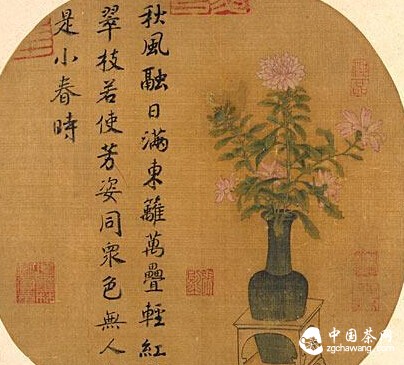 秋風融日滿東籬萬疊輕紅
翠枝若使芳姿同衆色無人
是小春時
中国茶网
zgchawang.com